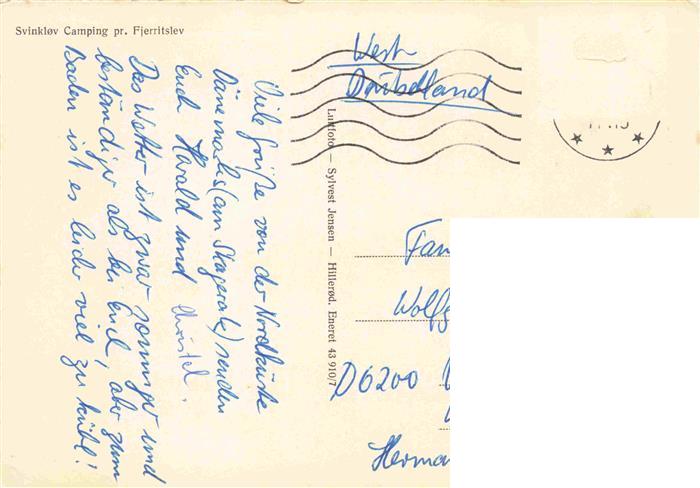 Svinkløv Camping pr. Fjerritslev
Viele Grüße von der Nordküste
Dänemarks (am Skagerak) senden
Euch Harald und Christel.
Das Wetter ist zwar sonniger und
beständiger als bei Euch, aber zum
Baden ist es leider viel zu kühl!
Luftfoto — Sylvest Jensen — Hillerød. Eneret 43 910/7
West
Deutschland
Fam
Wolfg
D6200
Herma